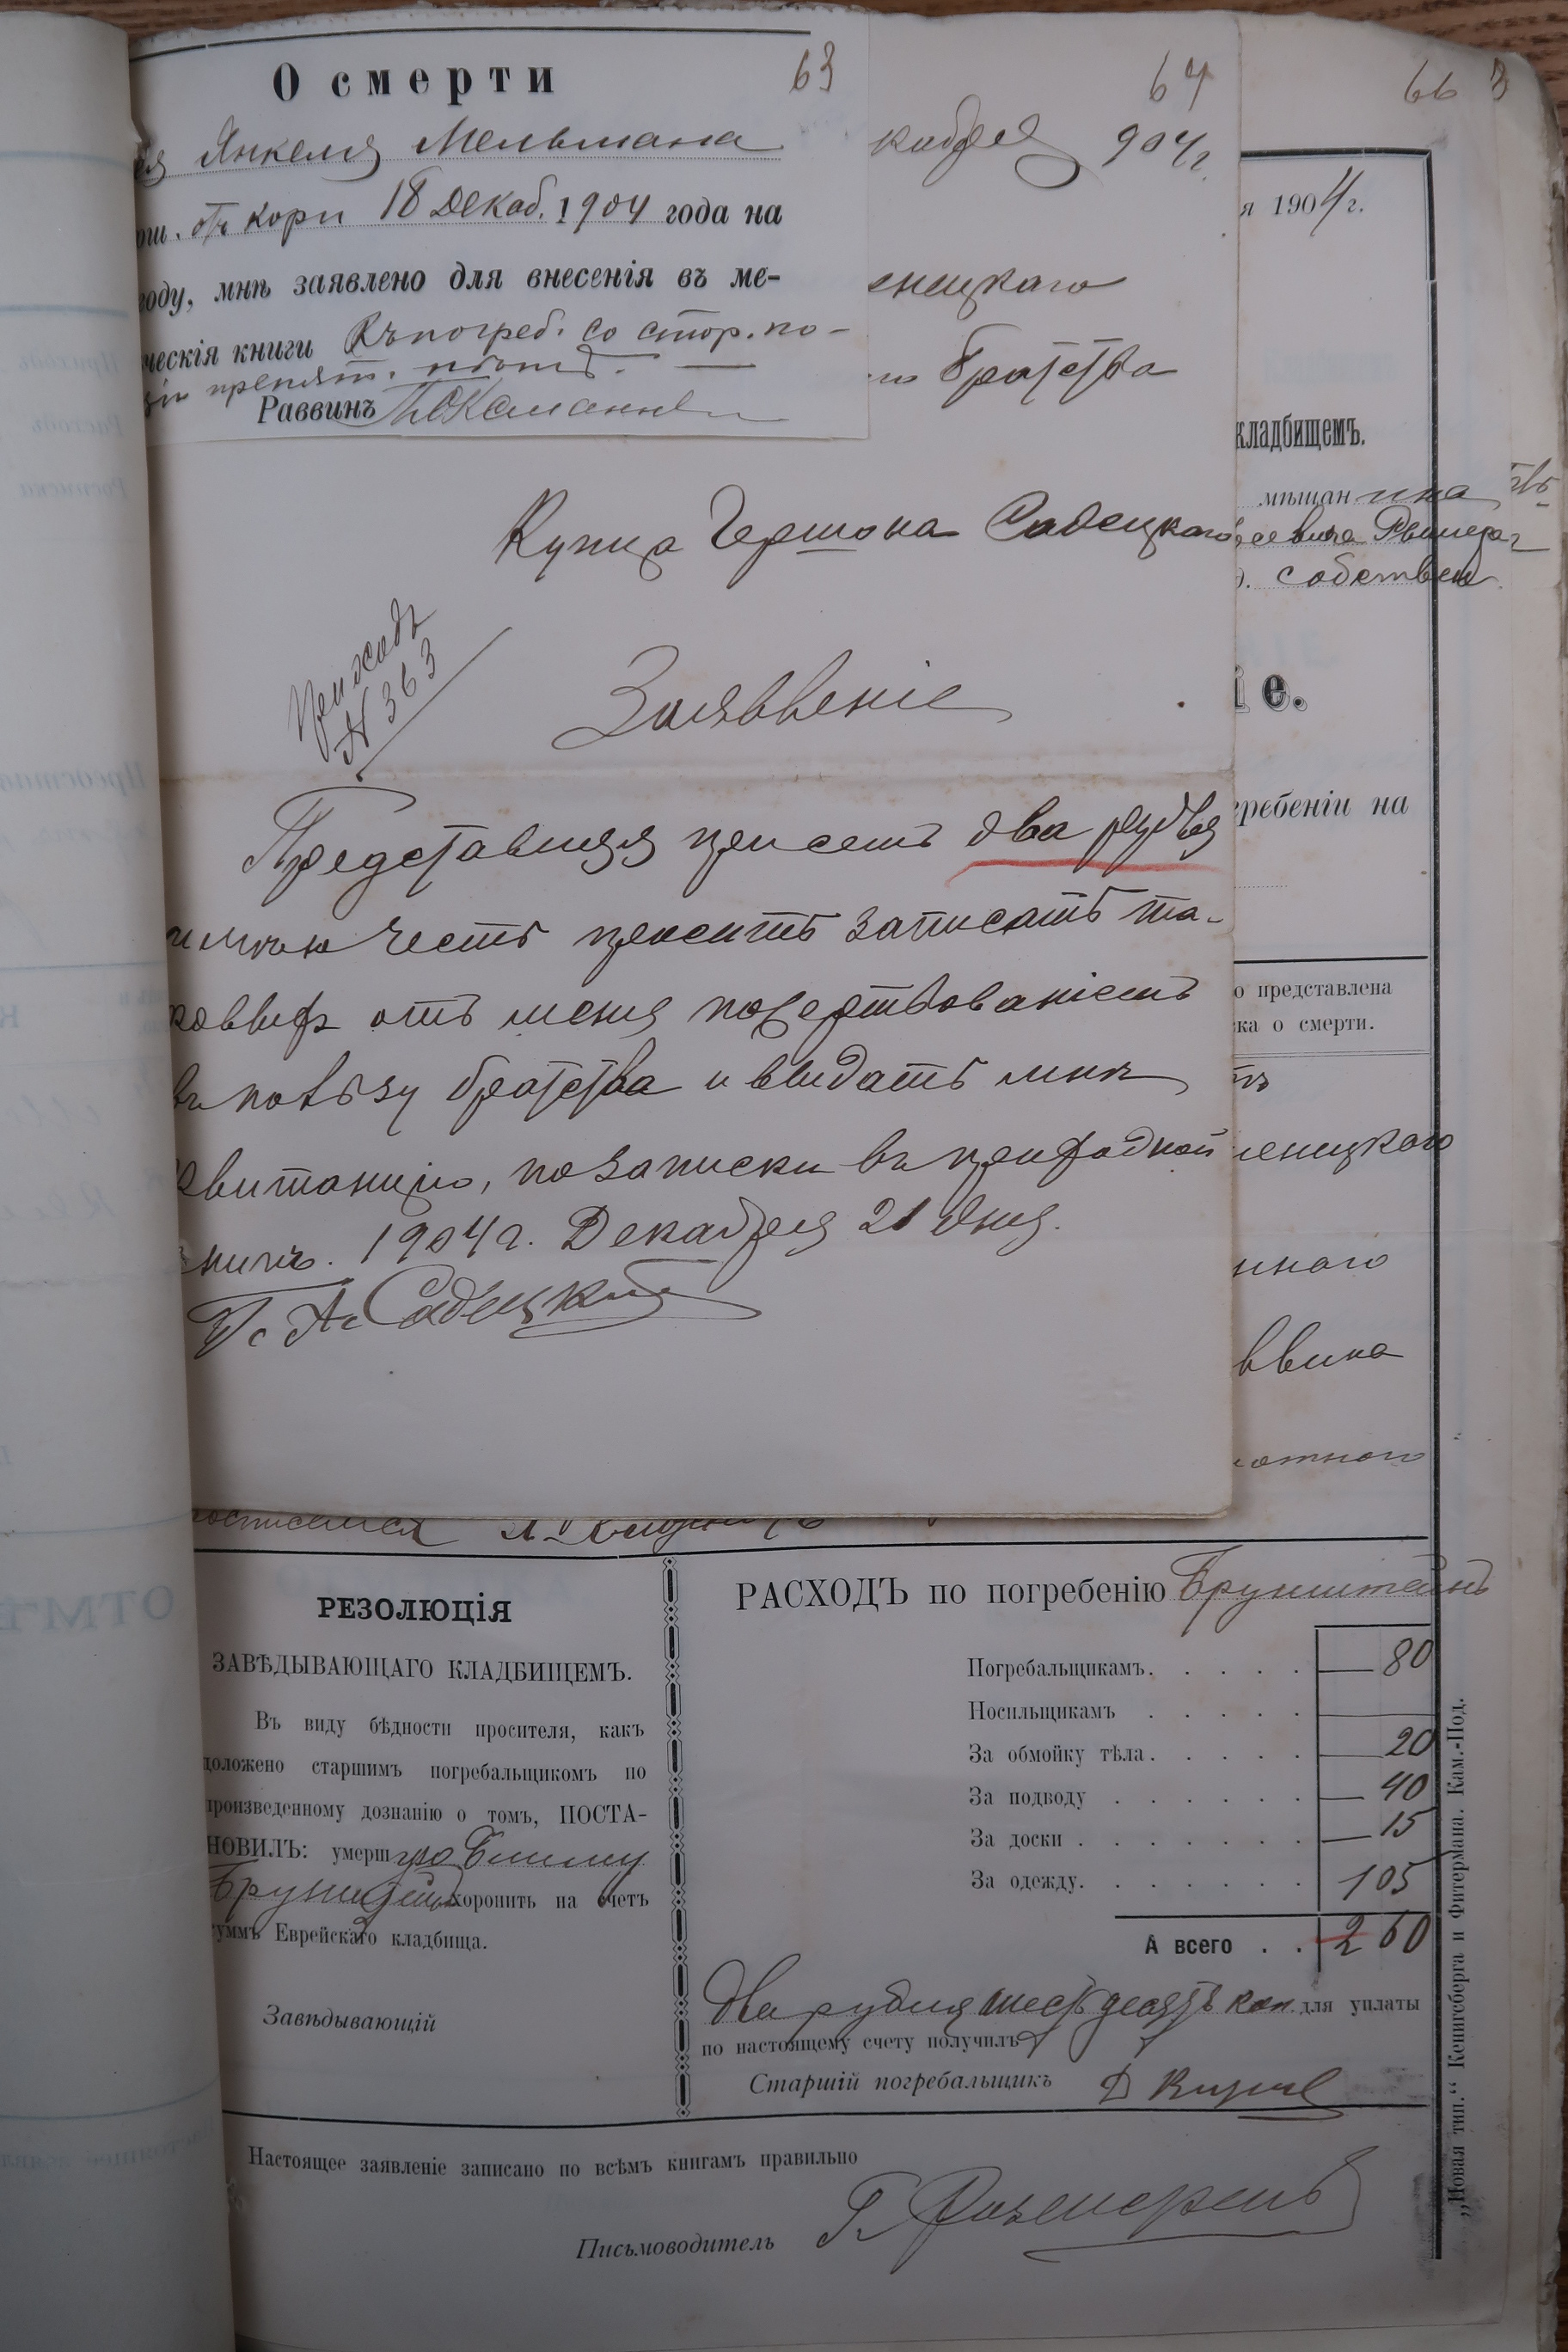 63
О смерти
Янкеля Мельмана
отъ кори 18 Декаб. 1904 года на
году, мнѣ заявлено для внесенія въ ме-
ческія книги Къ погреб. со стор. по-
препят. нѣтъ.
Раввинъ
64
кабря 904 г.
енецкаго
братства
Купца Гершона Садецкаго
Приходъ
N 363
Заявленіе
Представляя при семъ два рубля
имѣю честь просить записать та-
ковыя отъ меня пожертвованіемъ
въ пользу братства и выдать мнѣ
квитанцію, по записки въ приходной
книгѣ. 1904 г. Декабря 21 дня.
Г. А. Садецкій
66
я 1904 г.
кладбищемъ.
мѣщанина
собствен
іе.
гребеніи на
о представлена
ка о смерти.
тъ
енецкаго
ннаго
ввина
отнаго
РЕЗОЛЮЦІЯ
ЗАВѢДЫВАЮЩАГО КЛАДБИЩЕМЪ.
Въ виду бѣдности просителя, какъ
доложено старшимъ погребальщикомъ по
произведенному дознанію о томъ, ПОСТА-
НОВИЛЪ: умершую
Брунштейнъ хоронить на счетъ
суммъ Еврейскаго кладбища.
Завѣдывающій
РАСХОДЪ по погребенію Брунштейнъ
Погребальщикамъ. . . . . — 80
Носильщикамъ . . . . .
За обмойку тѣла. . . . . — 20
За подводу . . . . . . — 40
За доски . . . . . . . — 15
За одежду. . . . . . . 1 05
А всего . . 2 60
Два рубля шестьдесятъ коп. для уплаты
по настоящему счету получилъ
Старшій погребальщикъ
Настоящее заявленіе записано по всѣмъ книгамъ правильно
Письмоводитель
„Новая тип.“ Кенигсберга и Фитермана. Кам.-Под.